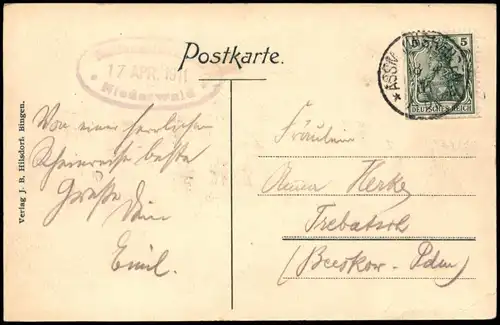 Postkarte.
17 APR. 1911
Niederwald
ASSM
5
DEUTSCHES REICH
Von einer herrlichen
Rheinreise beste
Grüße Dein
Emil.
Fräulein
Anna Herke
Trebatsch
(Beeskow-Pdm)
Verlag J. B. Hilsdorf, Bingen.